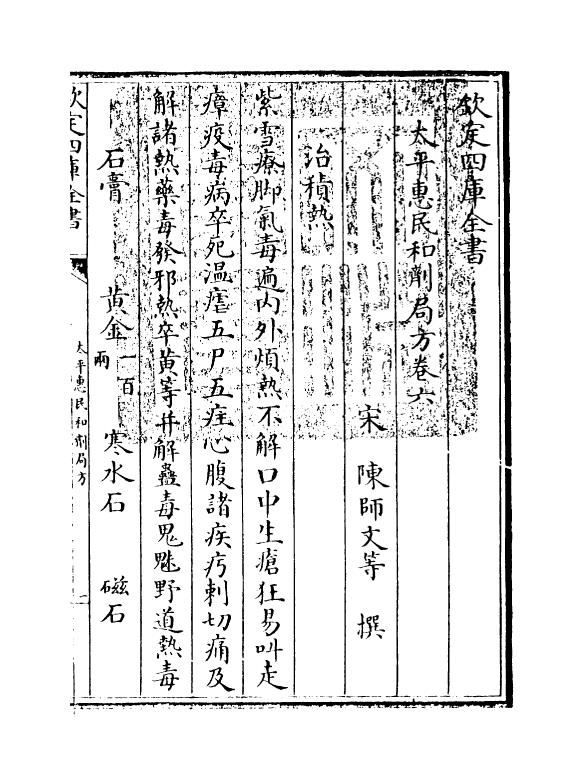 欽定四庫全書
太平惠民和劑局方卷六
宋 陳師文等 撰
治積熱
紫雪療脚氣毒遍内外煩熱不解口中生瘡狂易叫走
瘴疫毒病卒死温瘧五尸五疰心腹諸疾㽲刺切痛及
解諸熱藥毒發邪熱卒黄等并解蠱毒鬼魅野道熱毒
石膏 黄金一百兩 寒水石 磁石
欽定四庫全書
太平惠民和劑局方